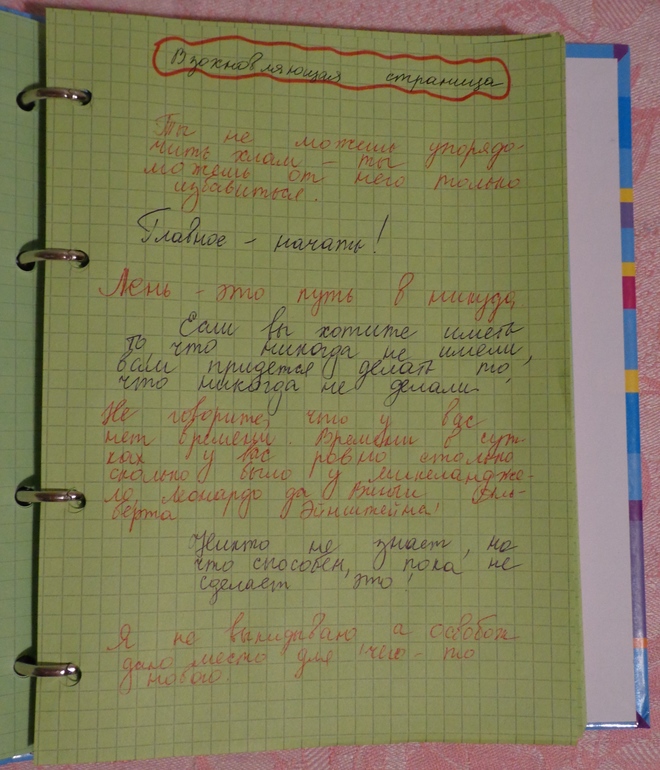 Вдохновляющая страница
Ты не можешь упорядо-
чить хлам – ты
можешь от него только
избавиться.
Главное – начать!
Лень – это путь в никуда,
Если вы хотите иметь
то что никогда не имели,
вам придется делать то,
что никогда не делали.
Не говорите, что у вас
нет времени. Времени в сут-
ках у вас ровно столько
сколько было у Микеландже-
ло, Леонардо да Винчи Аль-
берта Эйнштейна!
Никто не знает, на
что способен, пока не
сделает это!
Я не выкидываю а освобож
даю место для чего-то
нового.